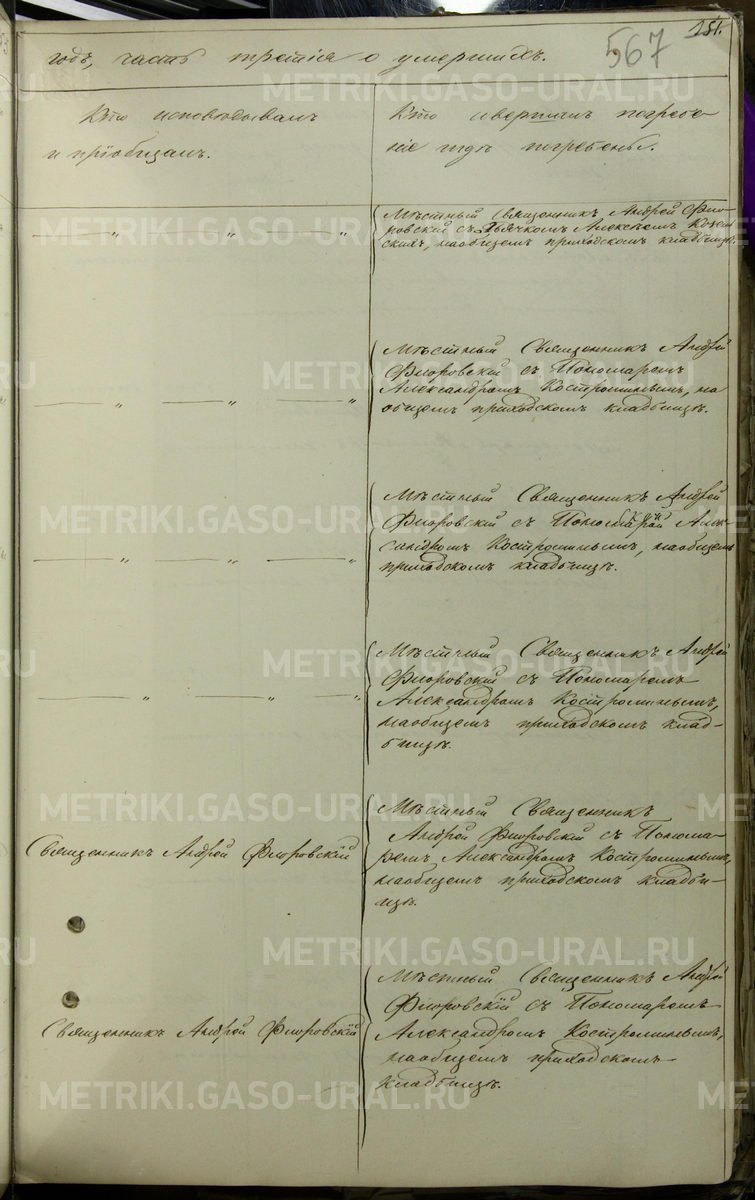 251.
567
годъ, часть третія о умершихъ.
Кто исповѣдывалъ
и пріобщалъ.
Кто совершалъ погребе-
ніе и гдѣ погребены.
Мѣстный Священникъ Андрей Флю-
ровскій съ Дьячкомъ Алексѣемъ
скихъ, на общемъ приходскомъ кладбищѣ.
— „ — „ — „
Мѣстный Священникъ Андрей
Флоровскій съ Пономаремъ
Александромъ Костроминымъ, на
общемъ приходскомъ кладбищѣ.
— „ — „ — „
Мѣстный Священникъ Андрей
Флоровскій съ Алек-
сандромъ Костроминымъ, на общемъ
приходскомъ кладбищѣ.
— „ — „ — „
Мѣстный Священникъ Андрей
Флоровскій съ Пономаремъ
Александромъ Костроминымъ,
на общемъ приходскомъ клад-
бищѣ.
— „ — „ — „
Мѣстный Священникъ
Андрей Флоровскій съ Понома-
ремъ Александромъ Костроминымъ,
на общемъ приходскомъ кладби-
щѣ.
Священникъ Андрей Флоровскій
Мѣстный Священникъ Андрей
Флоровскій съ Пономаремъ
Александромъ Костроминымъ,
на общемъ приходскомъ
кладбищѣ.
Священникъ Андрей Флоровскій
METRIKI.GASO-URAL.RU